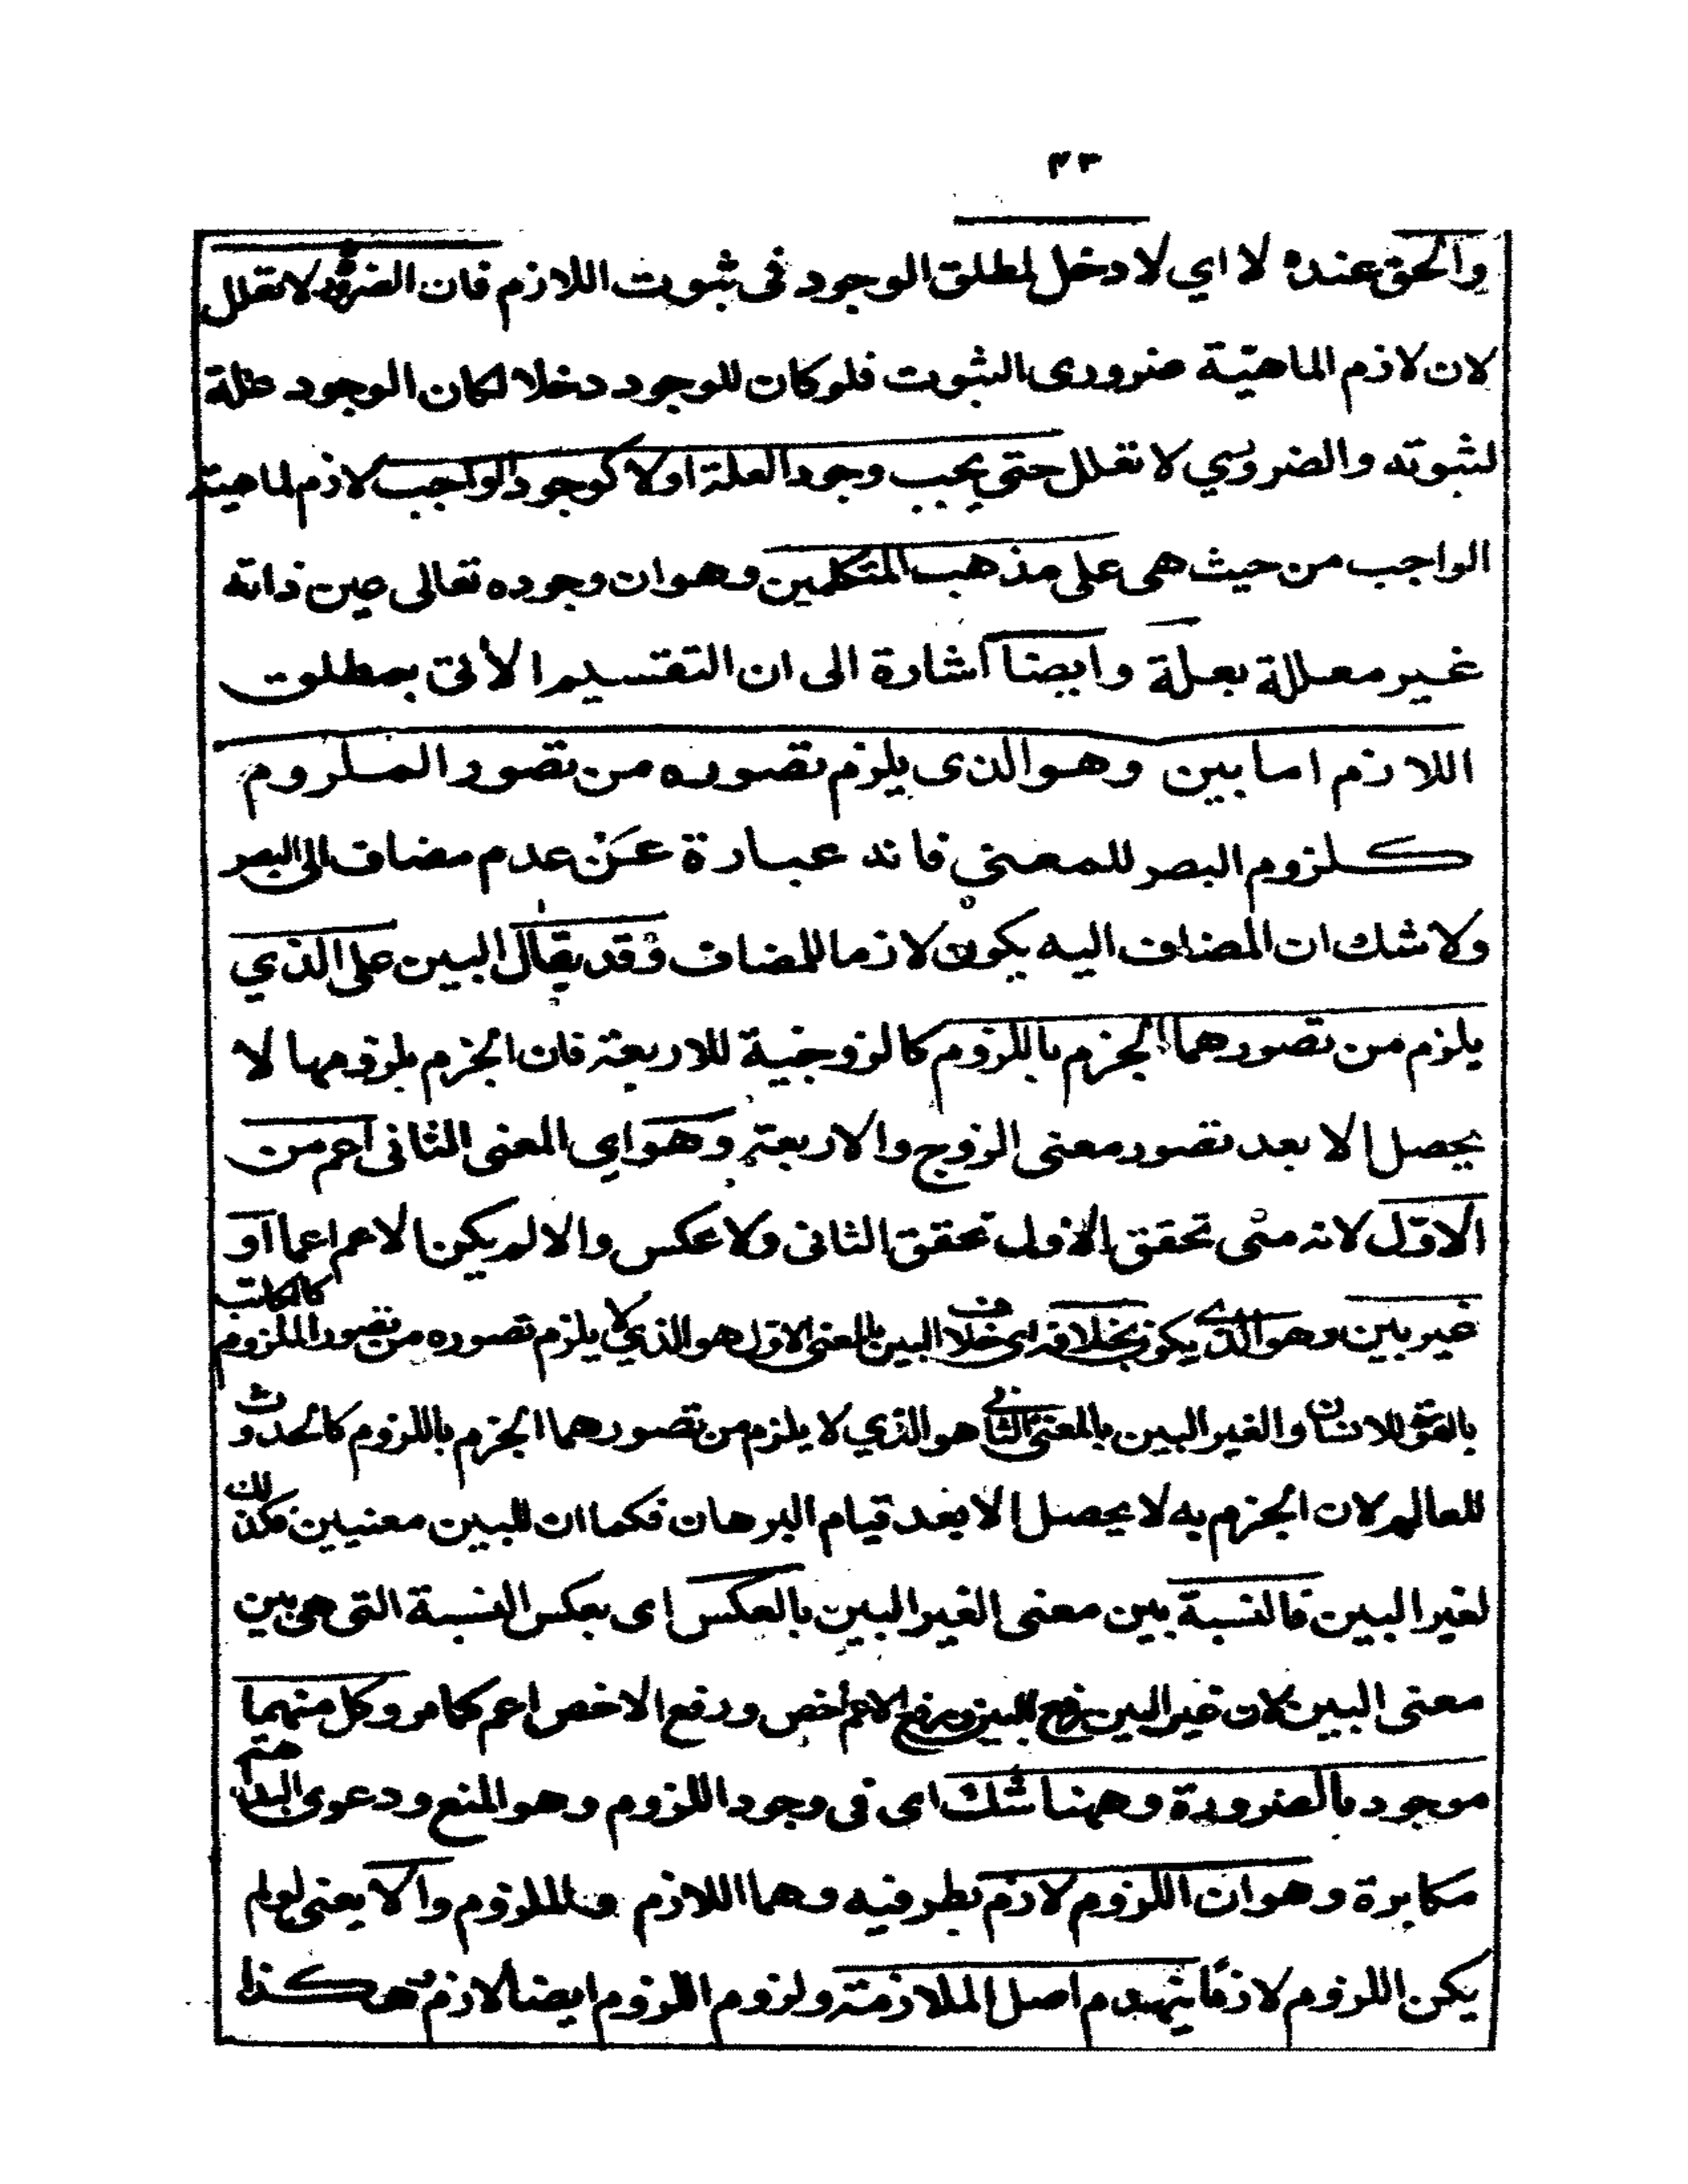 ٤٣
والحق عنده لا اي لا دخل لمطلق الوجود فى ثبوت اللازم فان الضرورة لا تعلل
لان لازم الماهيّة ضرورى الثبوت فلو كان للوجود دخلا لكان الوجود علة
لثبوته والضروري لا تعلل حتى يجب وجود العلة اولا كوجود الواجب لازم لماهية
الواجب من حيث هى على مذهب المتكلمين وهو ان وجوده تعالى عين ذاته
غير معللة بعلة وايضا اشارة الى ان التقسيم الأتى بمطلق
اللازم اما بين وهو الذى يلزم تصوره من تصور الملزوم
كلزوم البصر للمعنى فانه عبارة عَن عدم مضاف الى البصر
ولا شك ان المضاف اليه يكون لازما للمضاف وقد يقال البين على الذي
يلزم من تصورهما الجزم باللزوم كالزوجية للاربعة فان الجزم بلزومها لا
يحصل الا بعد تصور معنى الزوج والاربعة وهو اي المعنى الثانى اعم من
الاوّل لانه متى تحقق الاول تحقق الثانى ولا عكس والا لم يكن الاعم اعما او
غير بين وهو الذى يكون بخلافه اى خلاف البين بالمعنى الاول هو الذي لا يلزم تصوره من تصور الملزوم كالكاتب
بالقوة للانسان والغير البين بالمعنى الثانى هو الذي لا يلزم من تصورهما الجزم باللزوم كالحدوث
للعالم لان الجزم به لا يحصل الا بعد قيام البرهان فكما ان للبين معنيين فكذلك
لغير البين فالنسبة بين معنى الغير البين بالعكس اى بعكس النسبة التى هى بين
معنى البين لان غير البين رفع للبين ورفع الاعم اخص ورفع الاخص اعم كما مر وكل منهما
موجود بالضرورة وههنا شك اى فى وجود اللزوم وهو المنع ودعوى البداهة
مكابرة وهو ان اللزوم لازم بطرفيه وهما اللازم والملزوم والا يعنى لو لم
يكن اللزوم لازمًا ينهدم اصل الملازمة ولزوم اللزوم ايضا لازم هكذا